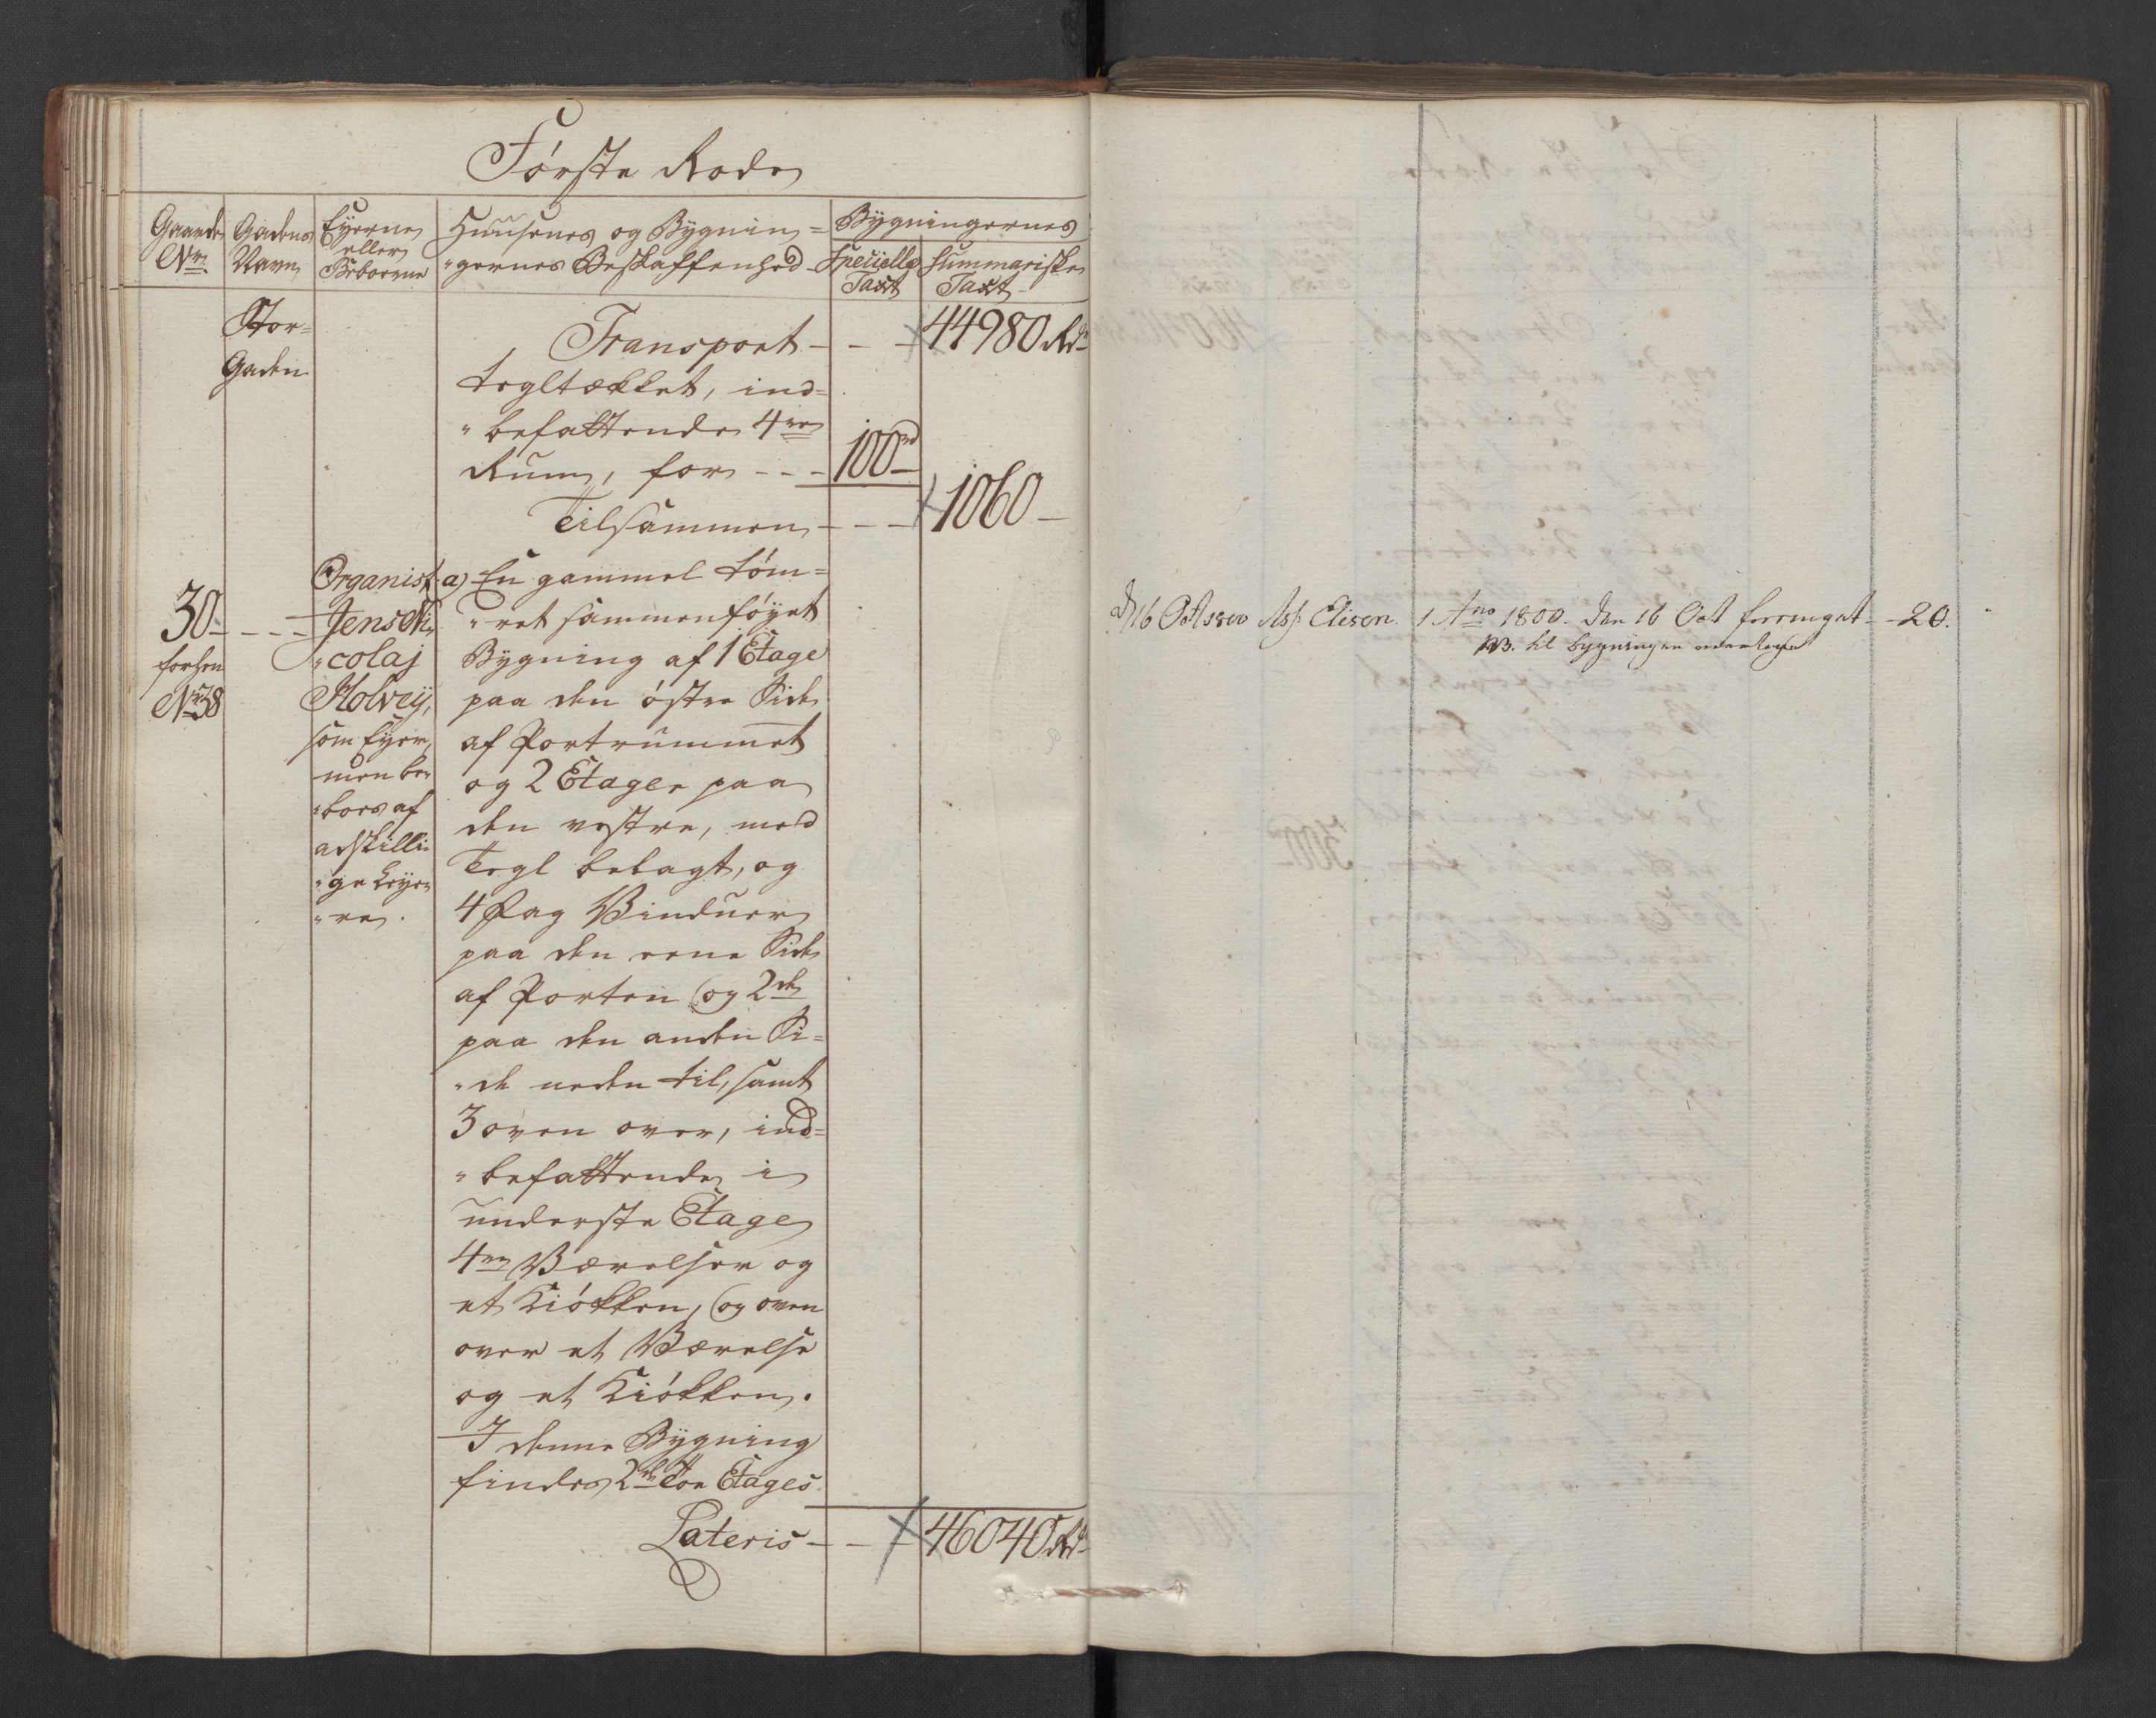 Første Rode
Gaarde Gadens Eyerne Huusenes og Bygnin= Bygningernes
Nr. Navn eller Beboerne "gernes Beskaffenhed Specielle Taxt Summariske Taxt
Stor=
Gaden
Transport - - - 44980 Rd
tegltækket, ind=
"befattende 4re
Rum, for - - - 100rd
Tilsammen - - - 1060 -
30 - - - -
forhen
No 38
Organist
Jens Ni=
"colaj
Holveÿ,
som Eyer,
men be=
"boes af
adskilli=
"ge Leye=
"re.
a) En gammel töm=
"ret sammenföyet
Bygning af 1 Etage
paa den östre Side
af Portrummet
og 2 Etager paa
den vestre, med
Tegl belagt, og
4 Fag Vinduer
paa den eene Side
af Porten og 2de
paa den anden Si=
"de neden til, samt
3 oven over, ind=
"befattende i
underste Etage
4re Værelser og
et Kiökken, og oven
over et Værelse
og et Kiökken.
I denne Bygning
findes 2de Toe Etages
Lateris - - 46040 Rd
D 16 Oct 1800 Ass. Elieson. 1 Ano 1800. den 16 Oct forringet - - 20.
NB. til bygningen